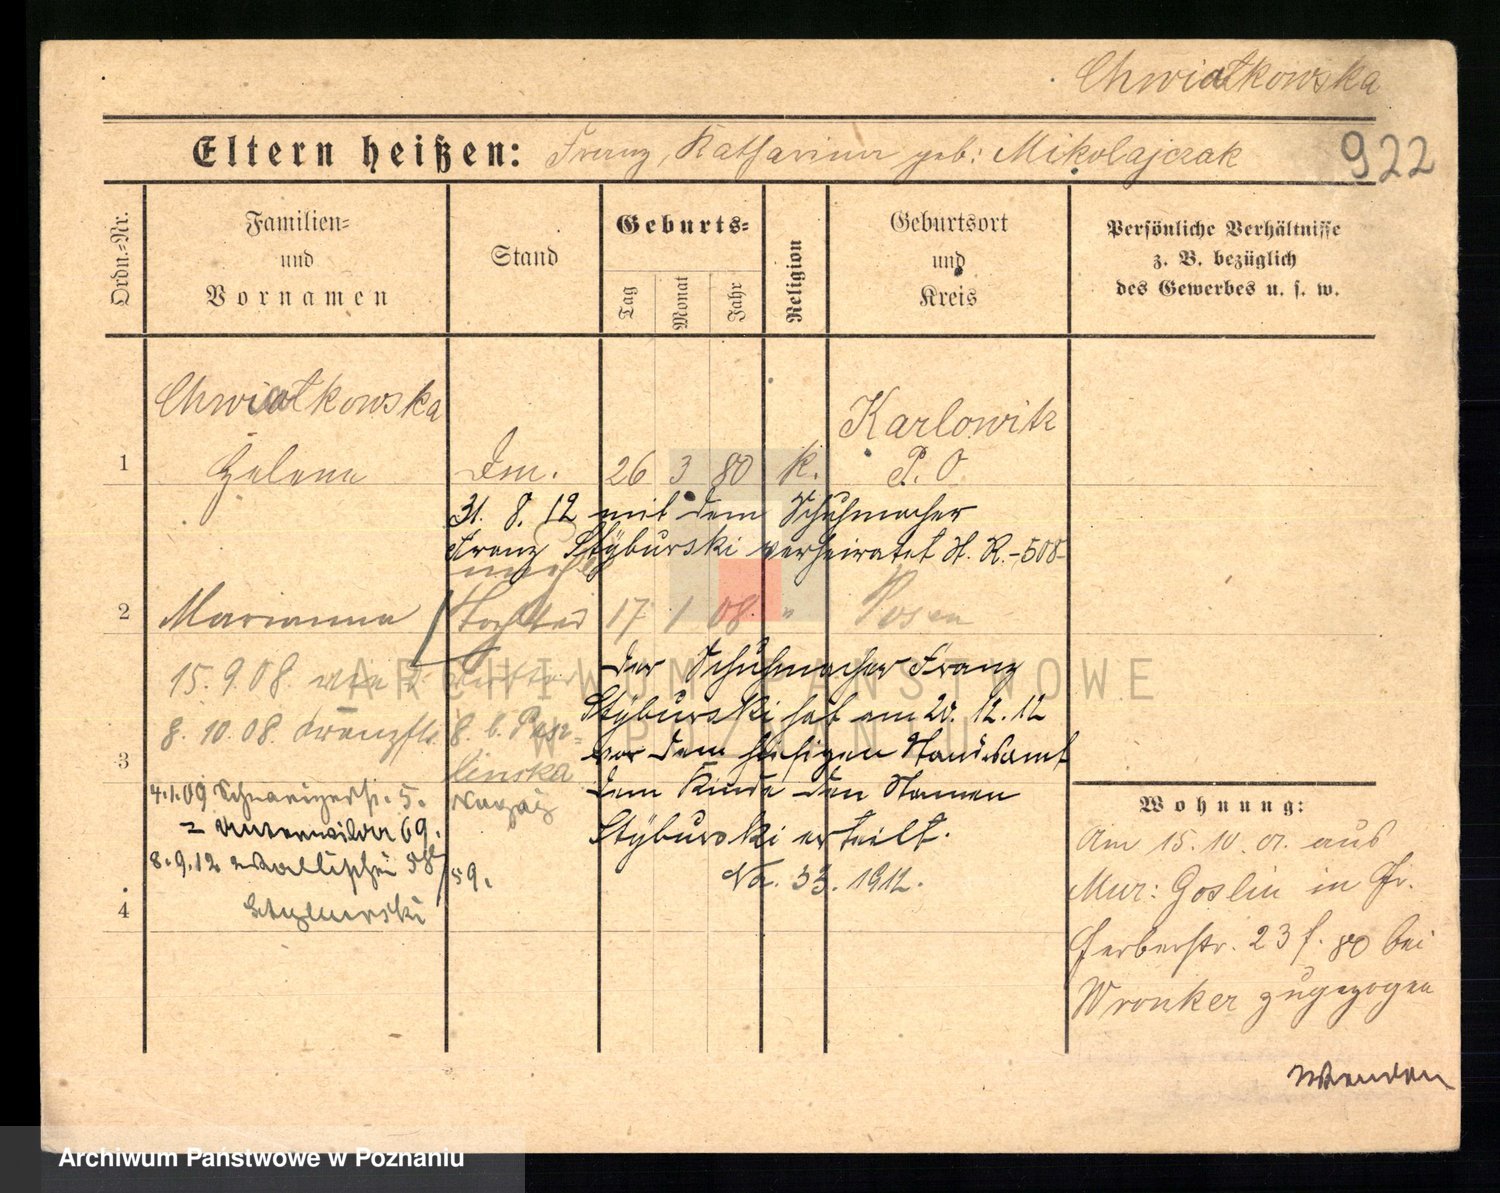 Chwiatkowska
922
Eltern heißen: Franz, Katharina geb: Mikolajczak
Ordn.-Nr.
Familien-
und
Vornamen
Stand
Geburts-
Tag
Monat
Jahr
Religion
Geburtsort
und
Kreis
Persönliche Verhältnisse
z. B. bezüglich
des Gewerbes u. s. w.
Chwiatkowska
Karlowitz
1 Helena 26 3 80 k. P. O.
31. 8. 12 mit dem Schuhmacher
Franz Styburski verheiratet H. R. 508
2 Marianna Tochter 17 1 08 " Posen
der Schuhmacher Franz
15.9.08
Styburski hat am 20. 12. 12
8. 10. 08.
vor dem hiesigen Standesamt
3
dem Kinde den Namen
4.1.09 5.
Styburski erteilt.
69.
8.9.12 Wallischei 58/59.
No. 33. 1912.
4 Styburski
Wohnung:
Am 15. 10. 07. aus
Mur: Goslin in Gr.
Gerberstr. 23 f. 80 bei
Wronker zugezogen
Wenden
ARCHIWUM PAŃSTWOWE
W POZNANIU
Archiwum Państwowe w Poznaniu